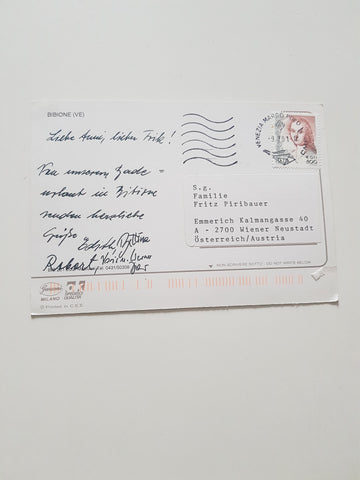 BIBIONE (VE)
Liebe Anni, lieber Fritz!
Von unserem Bade=
urlaub in Bibione
senden herzliche
Grüße
Robert
0431/50306
VENEZIA MARCO POLO
S.g.
Familie
Fritz Piribauer
Emmerich Kalmangasse 40
A - 2700 Wiener Neustadt
Österreich/Austria
NON SCRIVERE SOTTO DO NOT WRITE BELOW
MILANO
© Printed in C.E.E.